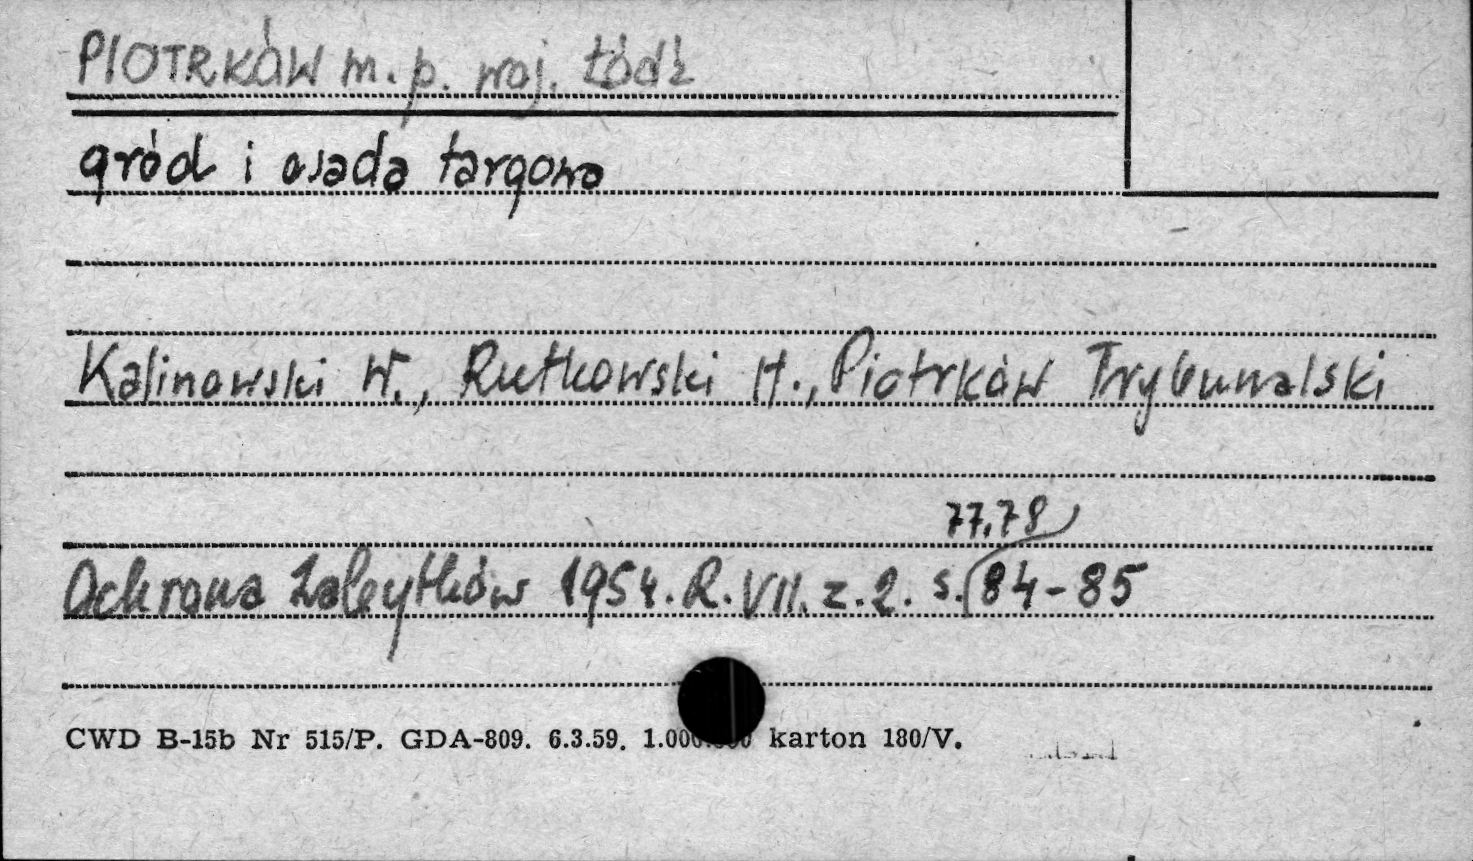 PIOTRKÓW m. p. woj. Łódź
gród i osada targowa
Kalinowski W., Rutkowski H., Piotrków Trybunalski
77,78
Ochrona Zabytków 1954. R. VII. z. 2. s. 84-85
CWD B-15b Nr 515/P. GDA-809. 6.3.59. 1.000.000 karton 180/V.